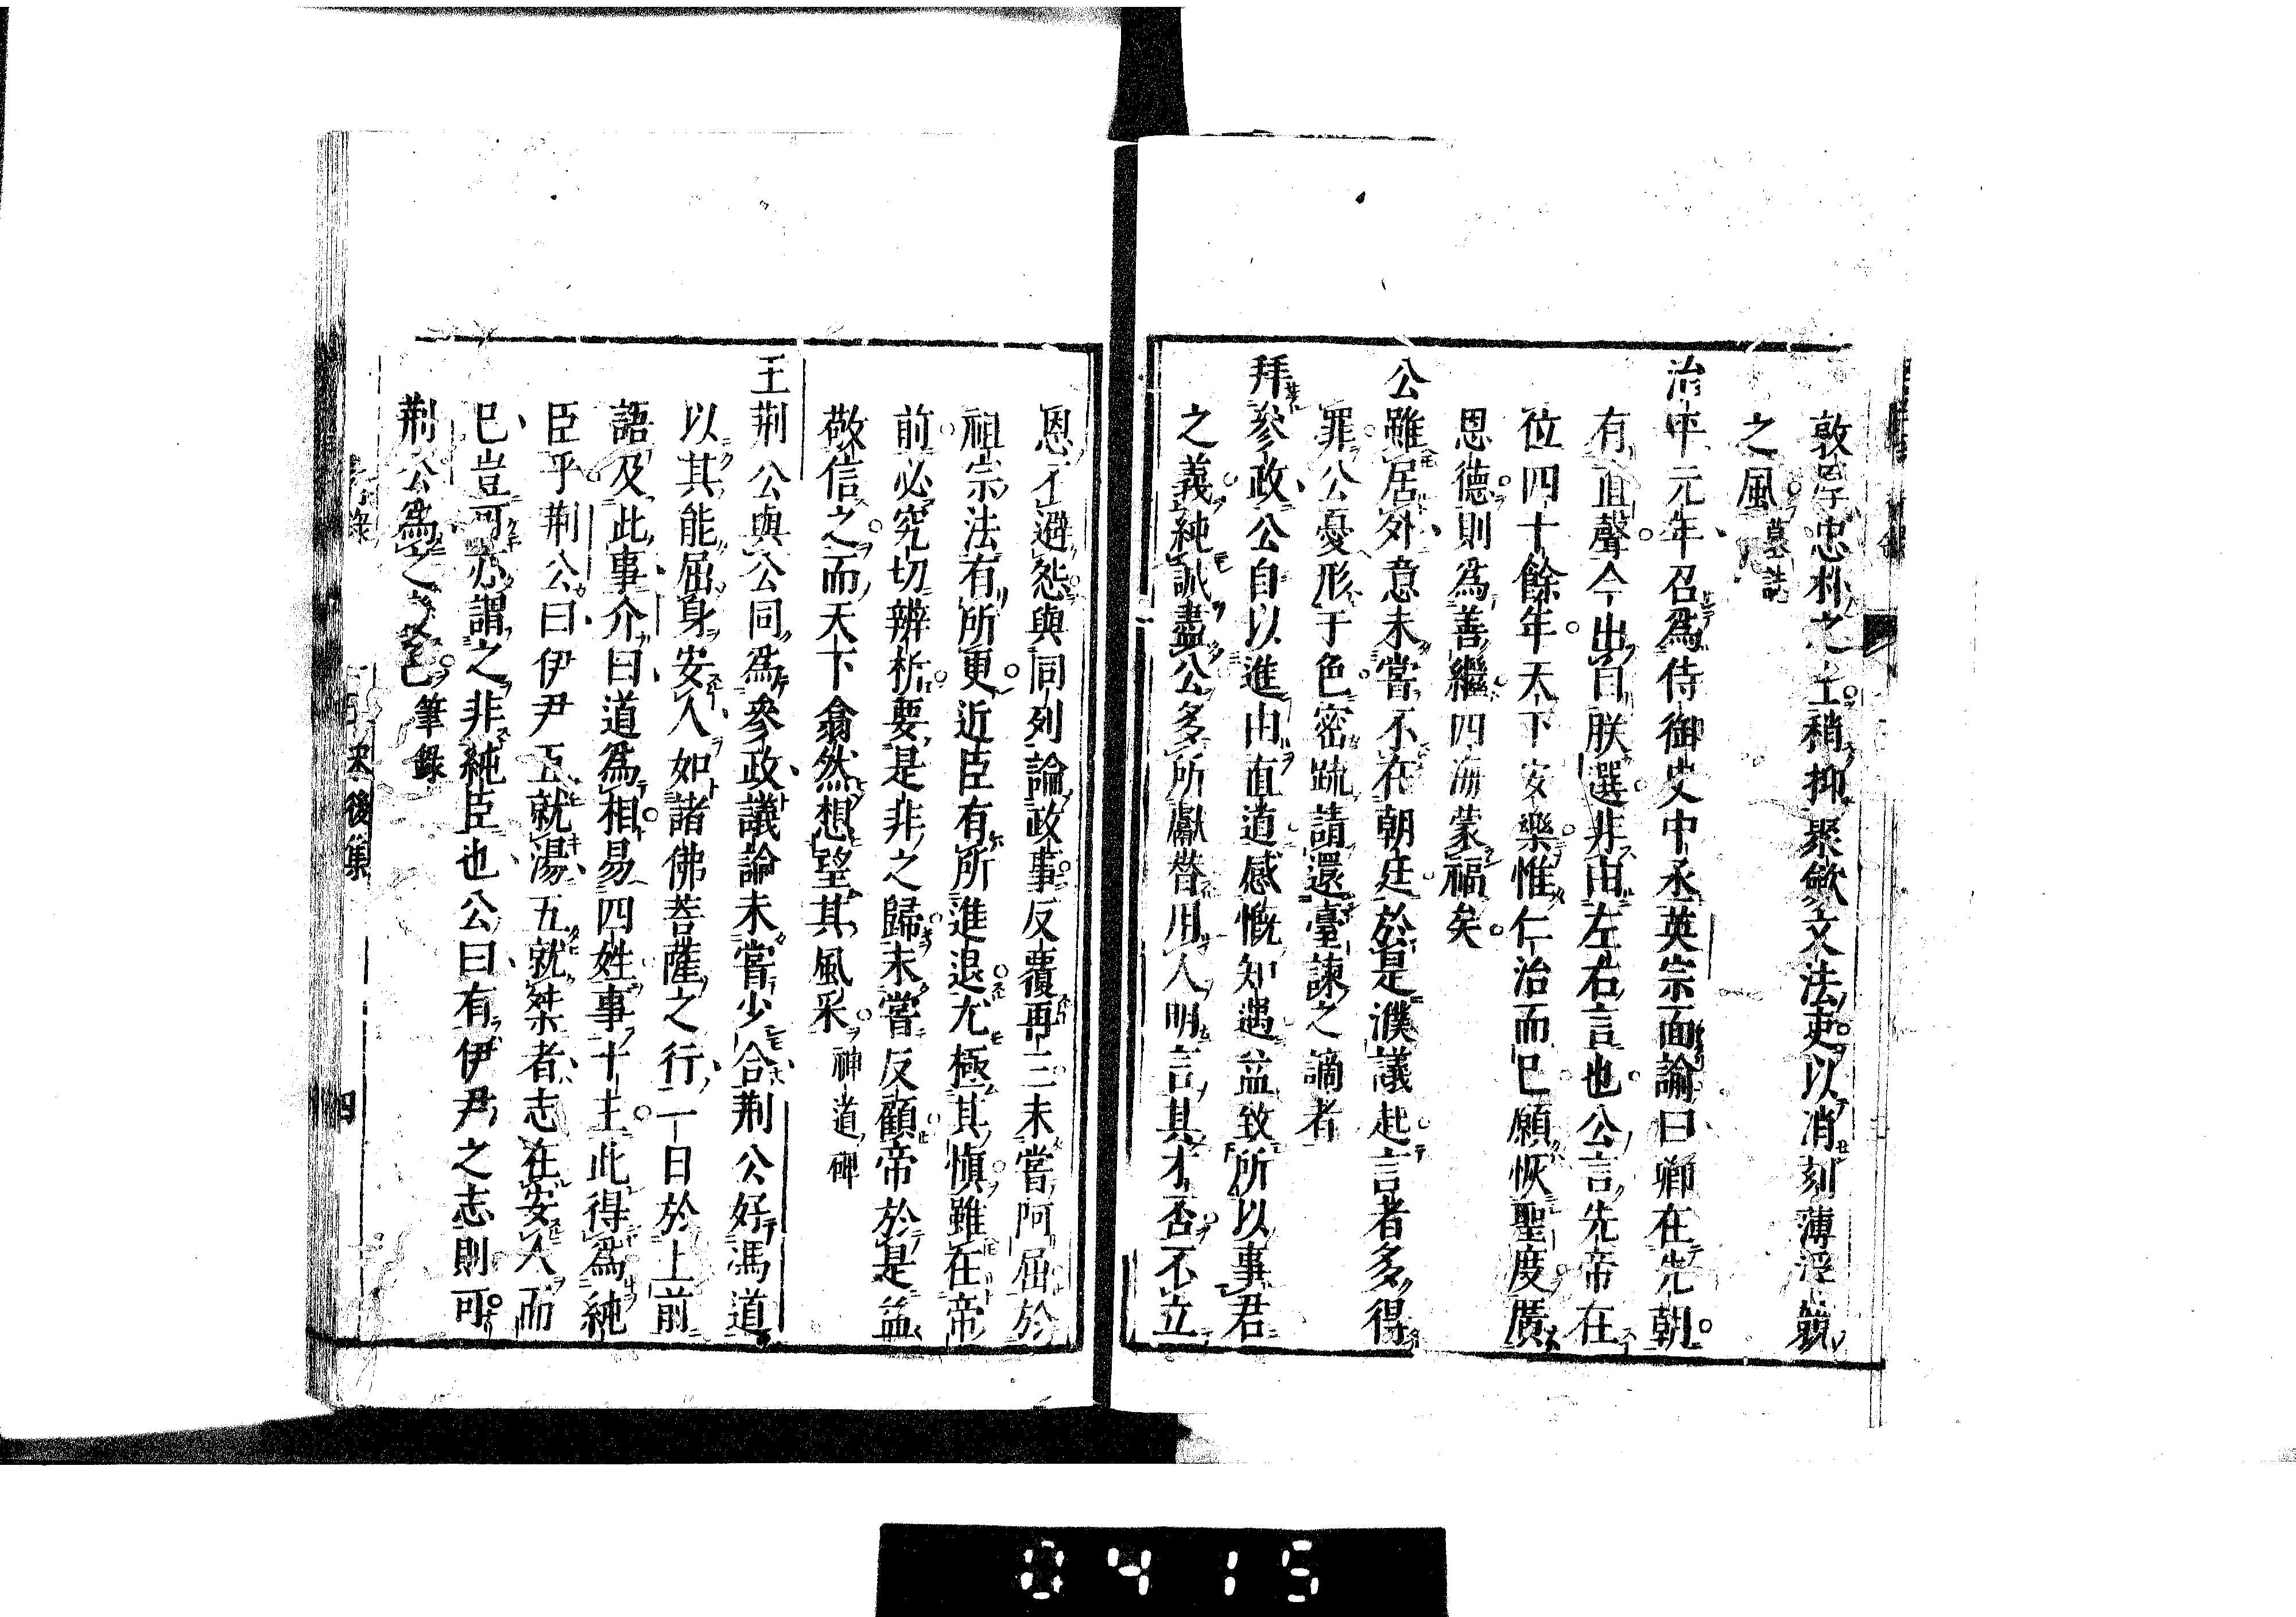 敦厚忠朴之士稍抑聚斂文法吏以消刻薄浮競
之風墓誌
治平元年召為侍御史中丞英宗面諭曰卿在先朝
有直聲今出自朕選非由左右言也公言先帝在
位四十餘年天下安樂惟仁治而已願恢聖度廣
恩德則為善繼四海蒙福矣
公雖居外意未嘗不在朝廷於是濮議起言者多得
罪公憂形于色密疏請還臺諫之謫者
拜參政公自以進由直道感慨知遇益致所以事君
之義純誠盡公多所獻替用人明言其才否不立
恩不避怨與同列論政事反覆再三未嘗阿屈於
祖宗法有所更近臣有所進退尤極其慎雖在帝
前必究切辨析要是非之歸未嘗反顧帝於是益
敬信之而天下翕然想望其風采神道碑
王荆公與公同為參政議論未嘗少合荆公好馮道
以其能屈身安人如諸佛菩薩之行一日於上前
語及此事介曰道為相易四姓事十主此得為純
臣乎荆公曰伊尹五就湯五就桀者志在安人而
已豈可亦謂之非純臣也公曰有伊尹之志則可
荆公為之變色筆錄
宋後集
四
0415